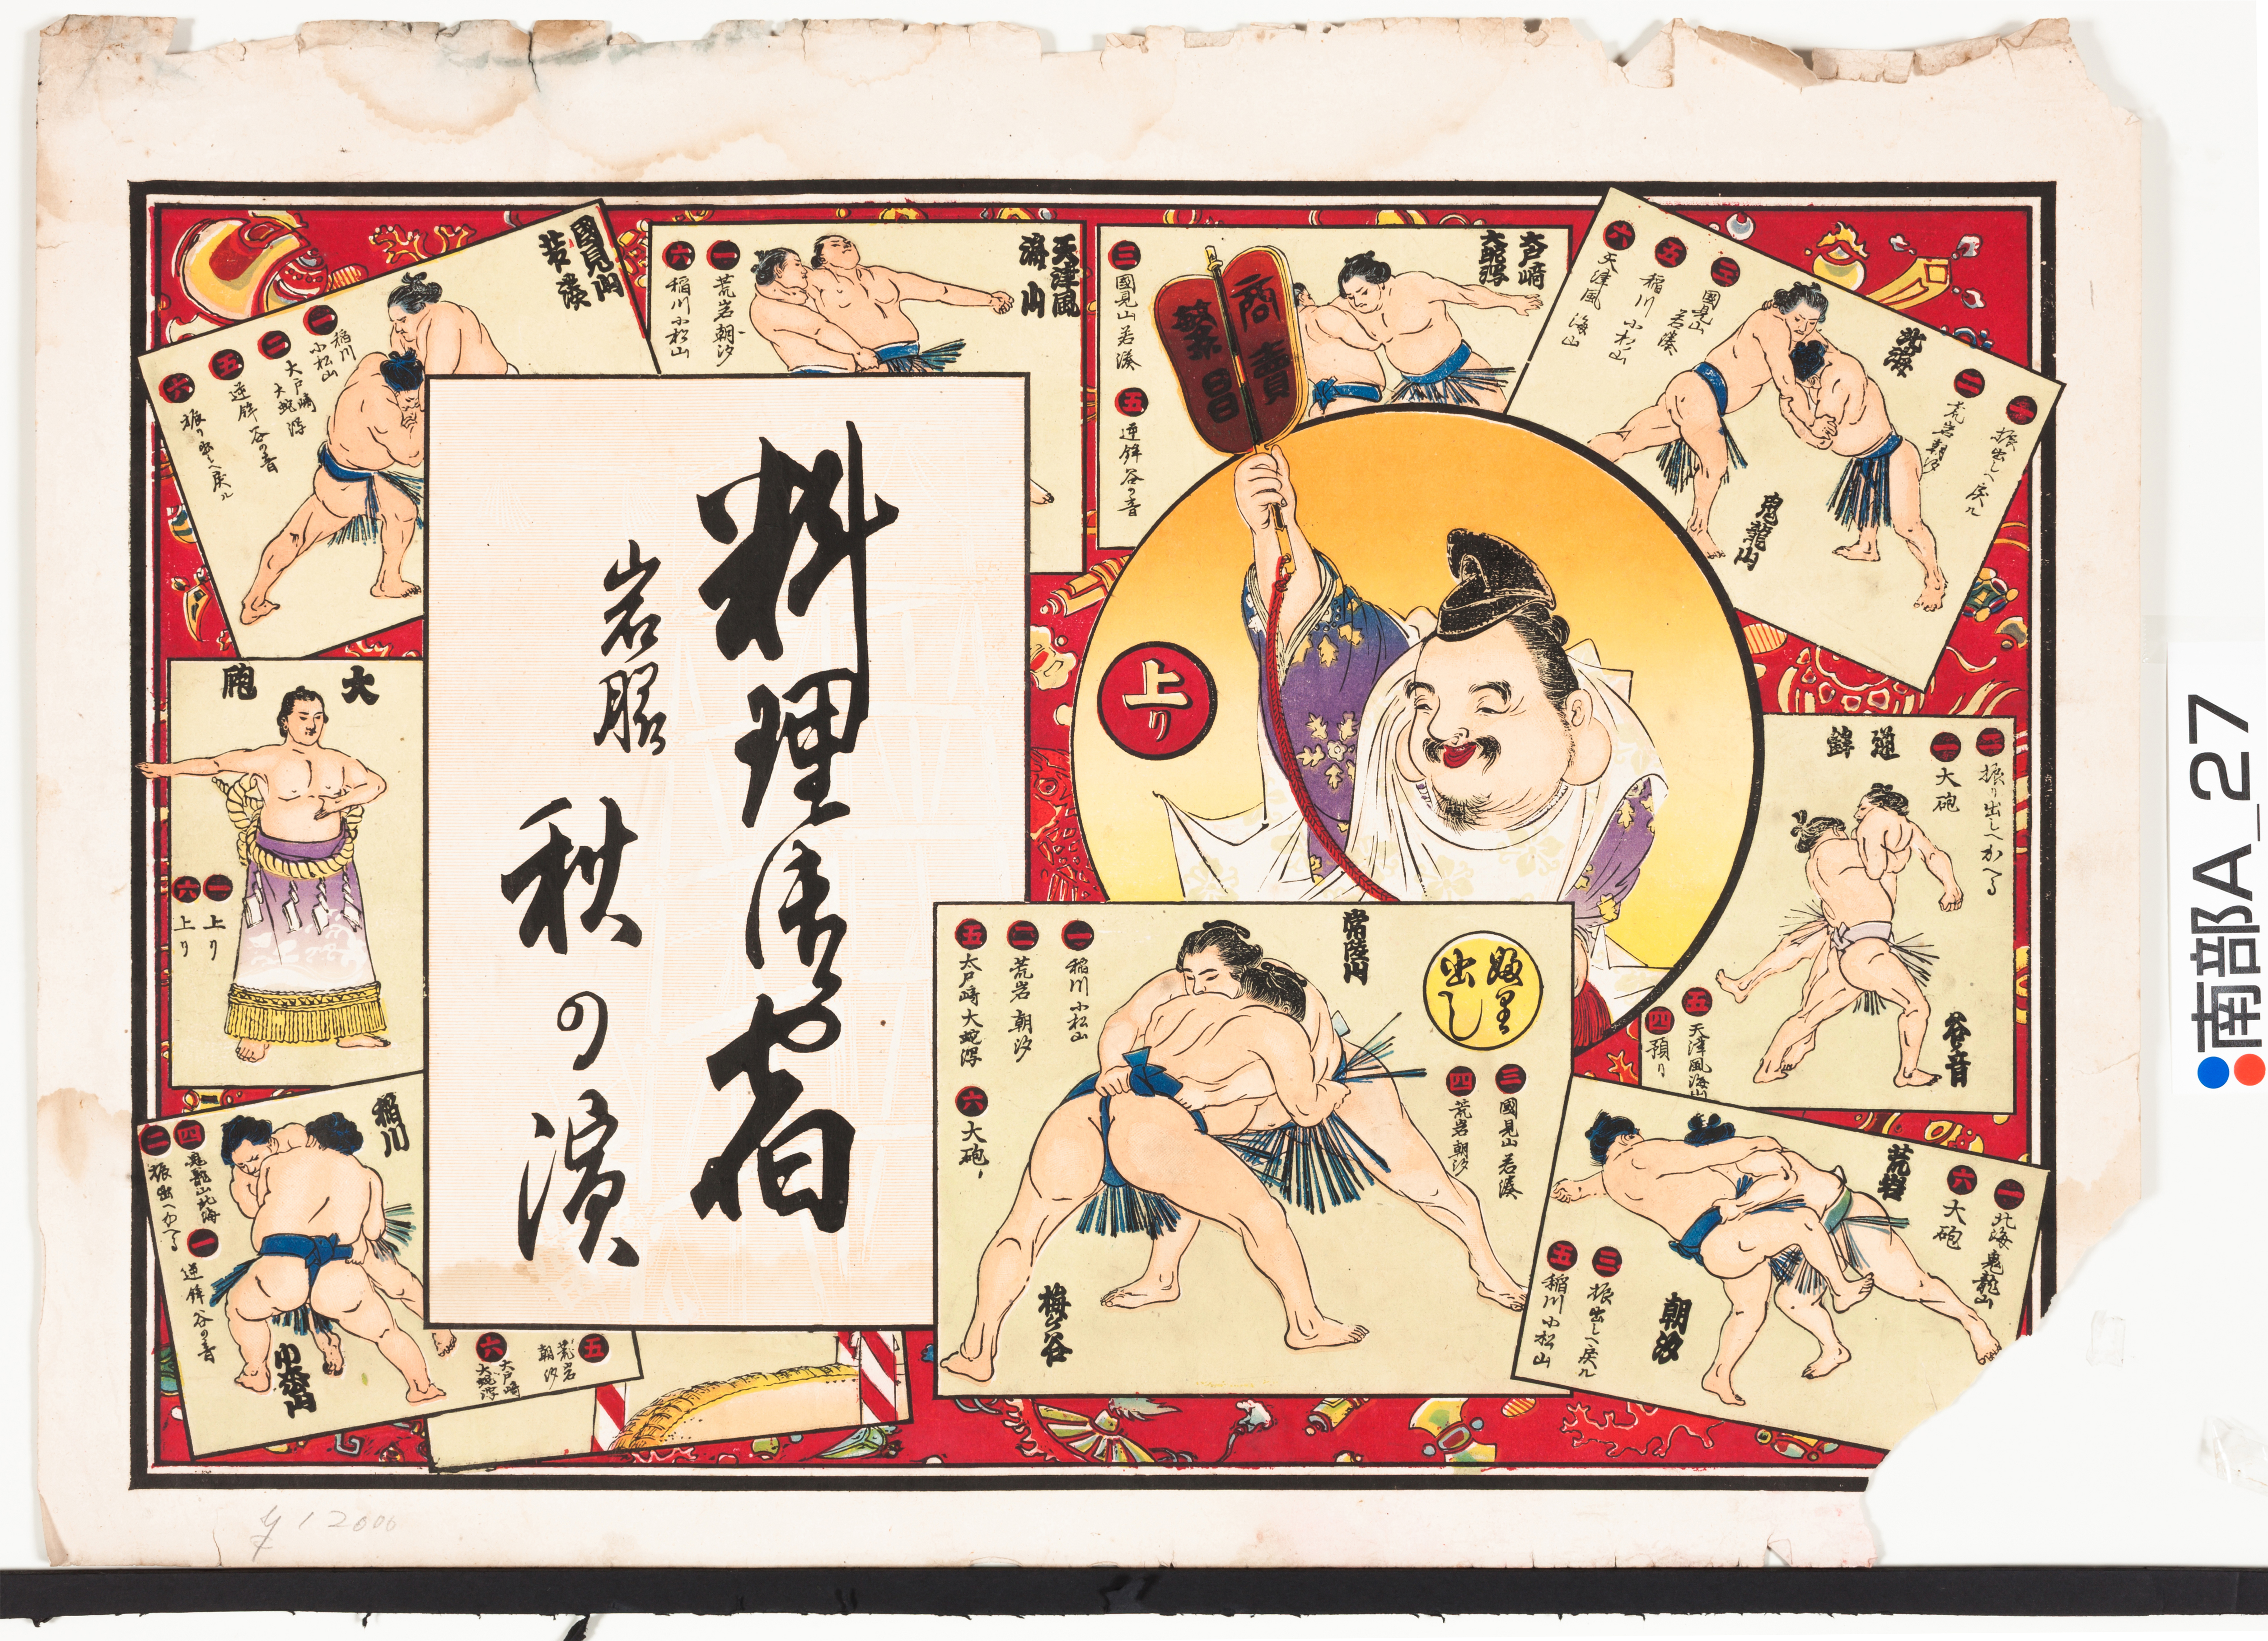 商賣
繁昌
上り
ふり
出し
常陸山
梅ヶ谷
一 稲川 小松山
二 荒岩 朝汐
五 大戸崎 大蛇潟
六 大砲
三 國見山 若湊
四 荒岩 朝汐
荒岩
朝汐
一 北海 鬼龍山
六 大砲
三 振出しへ戻ル
五 稲川 小松山
逆鉾
谷ノ音
二 振り出しへかへる
一 大砲
五 天津風 海山
四 預り
北海
鬼龍山
一 振出しへ戻ル
二 荒岩 朝汐
三 國見山 若湊
五 稲川 小松山
六 天津風 海山
大戸崎
大蛇潟
三 國見山 若湊
五 逆鉾 谷の音
天津風
海山
一 荒岩 朝汐
六 稲川 小松山
國見山
若湊
一 稲川 小松山
二 大戸崎 大蛇潟
五 逆鉾 谷の音
六 振り出しへ戻ル
大砲
一 上り
六 上り
稲川
小松山
四 鬼龍山 北海
二 振出へかへる
一 逆鉾 谷の音
五 荒岩 朝汐
六 大戸崎 大蛇潟
料理
宿
岩
秋の濱
¥12000
南部A_27